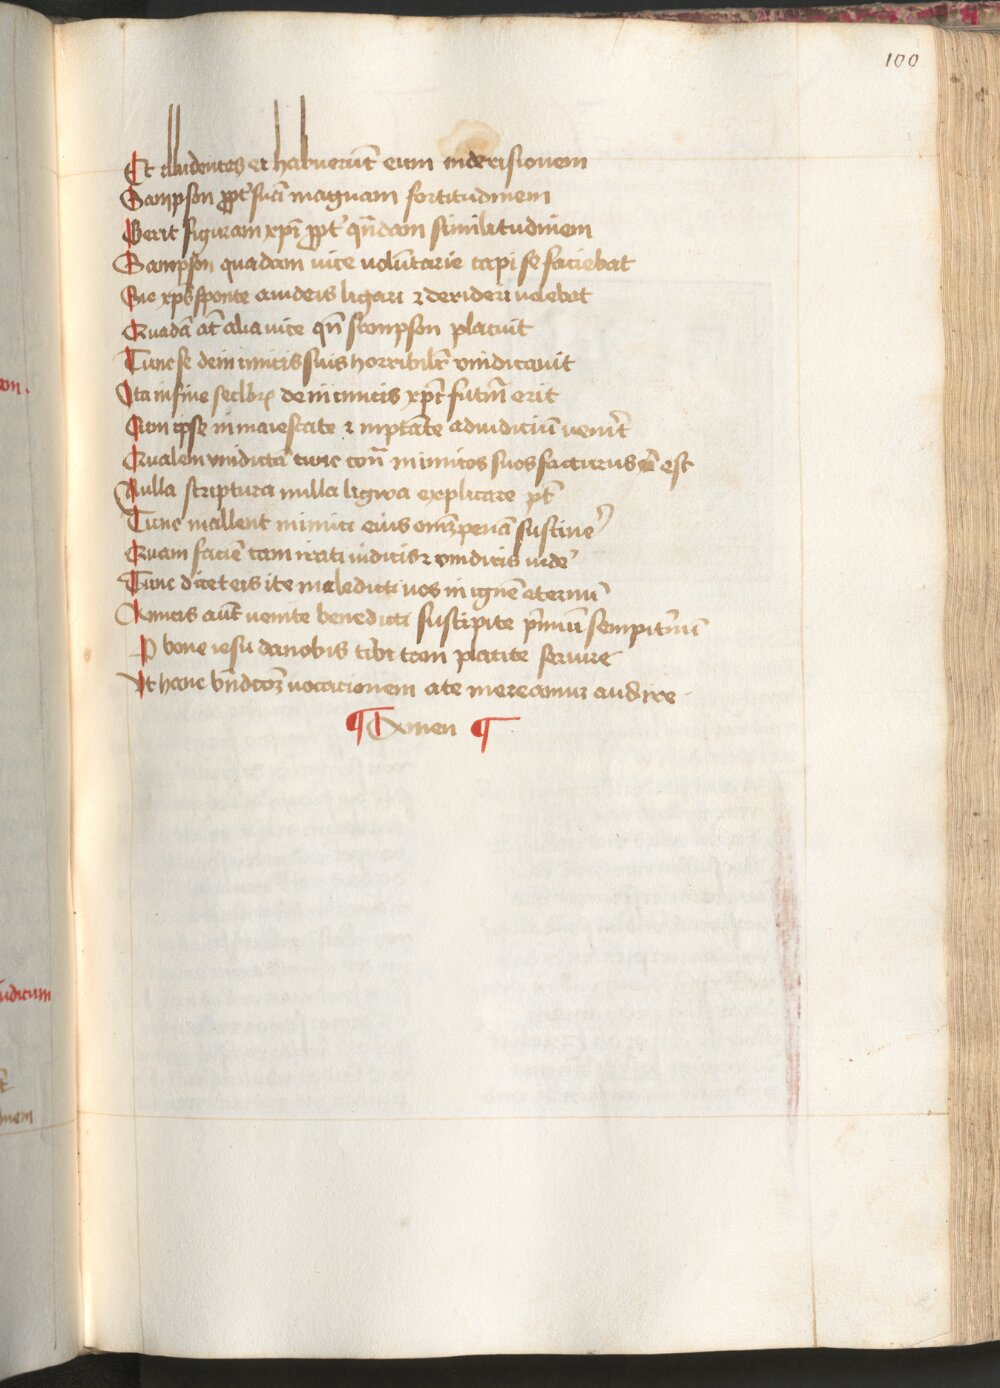 100
Et alludentes et habuerūt eum inderisionem
Sampson ꝓpt̛ suā magnam fortitudinem
Gerit figuram xp̄i ꝓpt̛ qn̄dam similitudinem
Sampson quadam uice volūtarie capi se faciebat
Sic xp̄s sponte a iudeis ligari ⁊ derideri uolebat
Quadā at̄ alia uice qn̄ sampson placuit
Tunc se de inimicis suis horribilit̛ vindicauit
Ita in fine seclorꝝ de inimicis xp̄i futur̄ erit
Cum ipse in maiestate ⁊ in ptāte ad iudiciū uenit̛
Qualem vindictā tunc cont̄ inimicos suos facturus est
Nulla scriptura nulla ligwa explicare pt̄
Tunc mallent inimici eius om̄ẽ penā sustine̛
Quam faciē tam irati iudicis ⁊ vindicis uide̛
Tunc dicet eis ite maledicti uos in ignē eternū
Amicis aūt uenite benedicti suscipite p̄miū sempit̛nū
O bone iesu da nobis tibi tam placite seruire
Vt hanc bn̄dcōꝫ uocacionem a te mereamur audire
¶ Amen ¶
am.
iudicium
inem